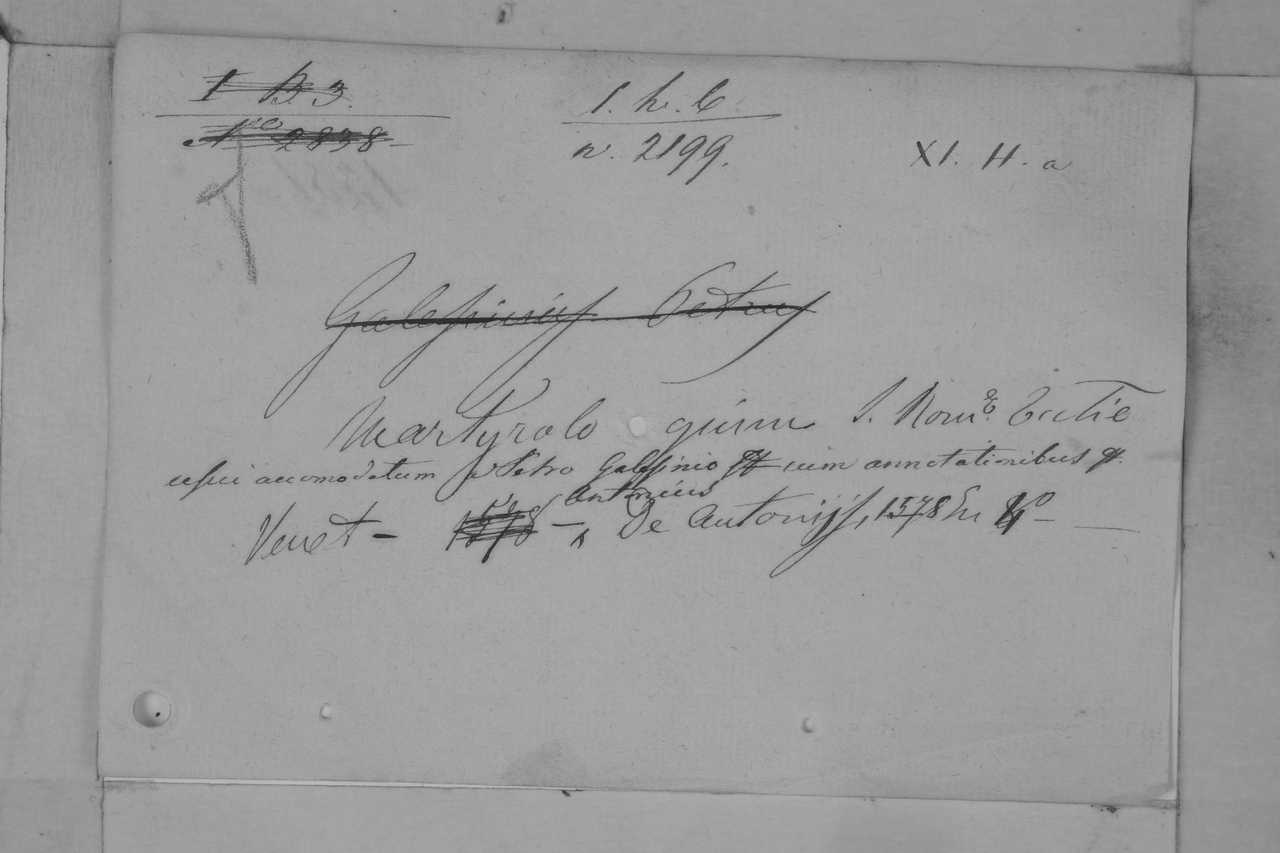 I B 3.
N:o 2838
I. h. C
n. 2199.
XI. H. a
Galesinius Petrus
Martyrolo gium S. Rom. Eccliē
usui accomodatum p Petro Galesinio cum annotationibus
Antonius
Venet - 1578 - De Antonijs, 1578 In 4o -